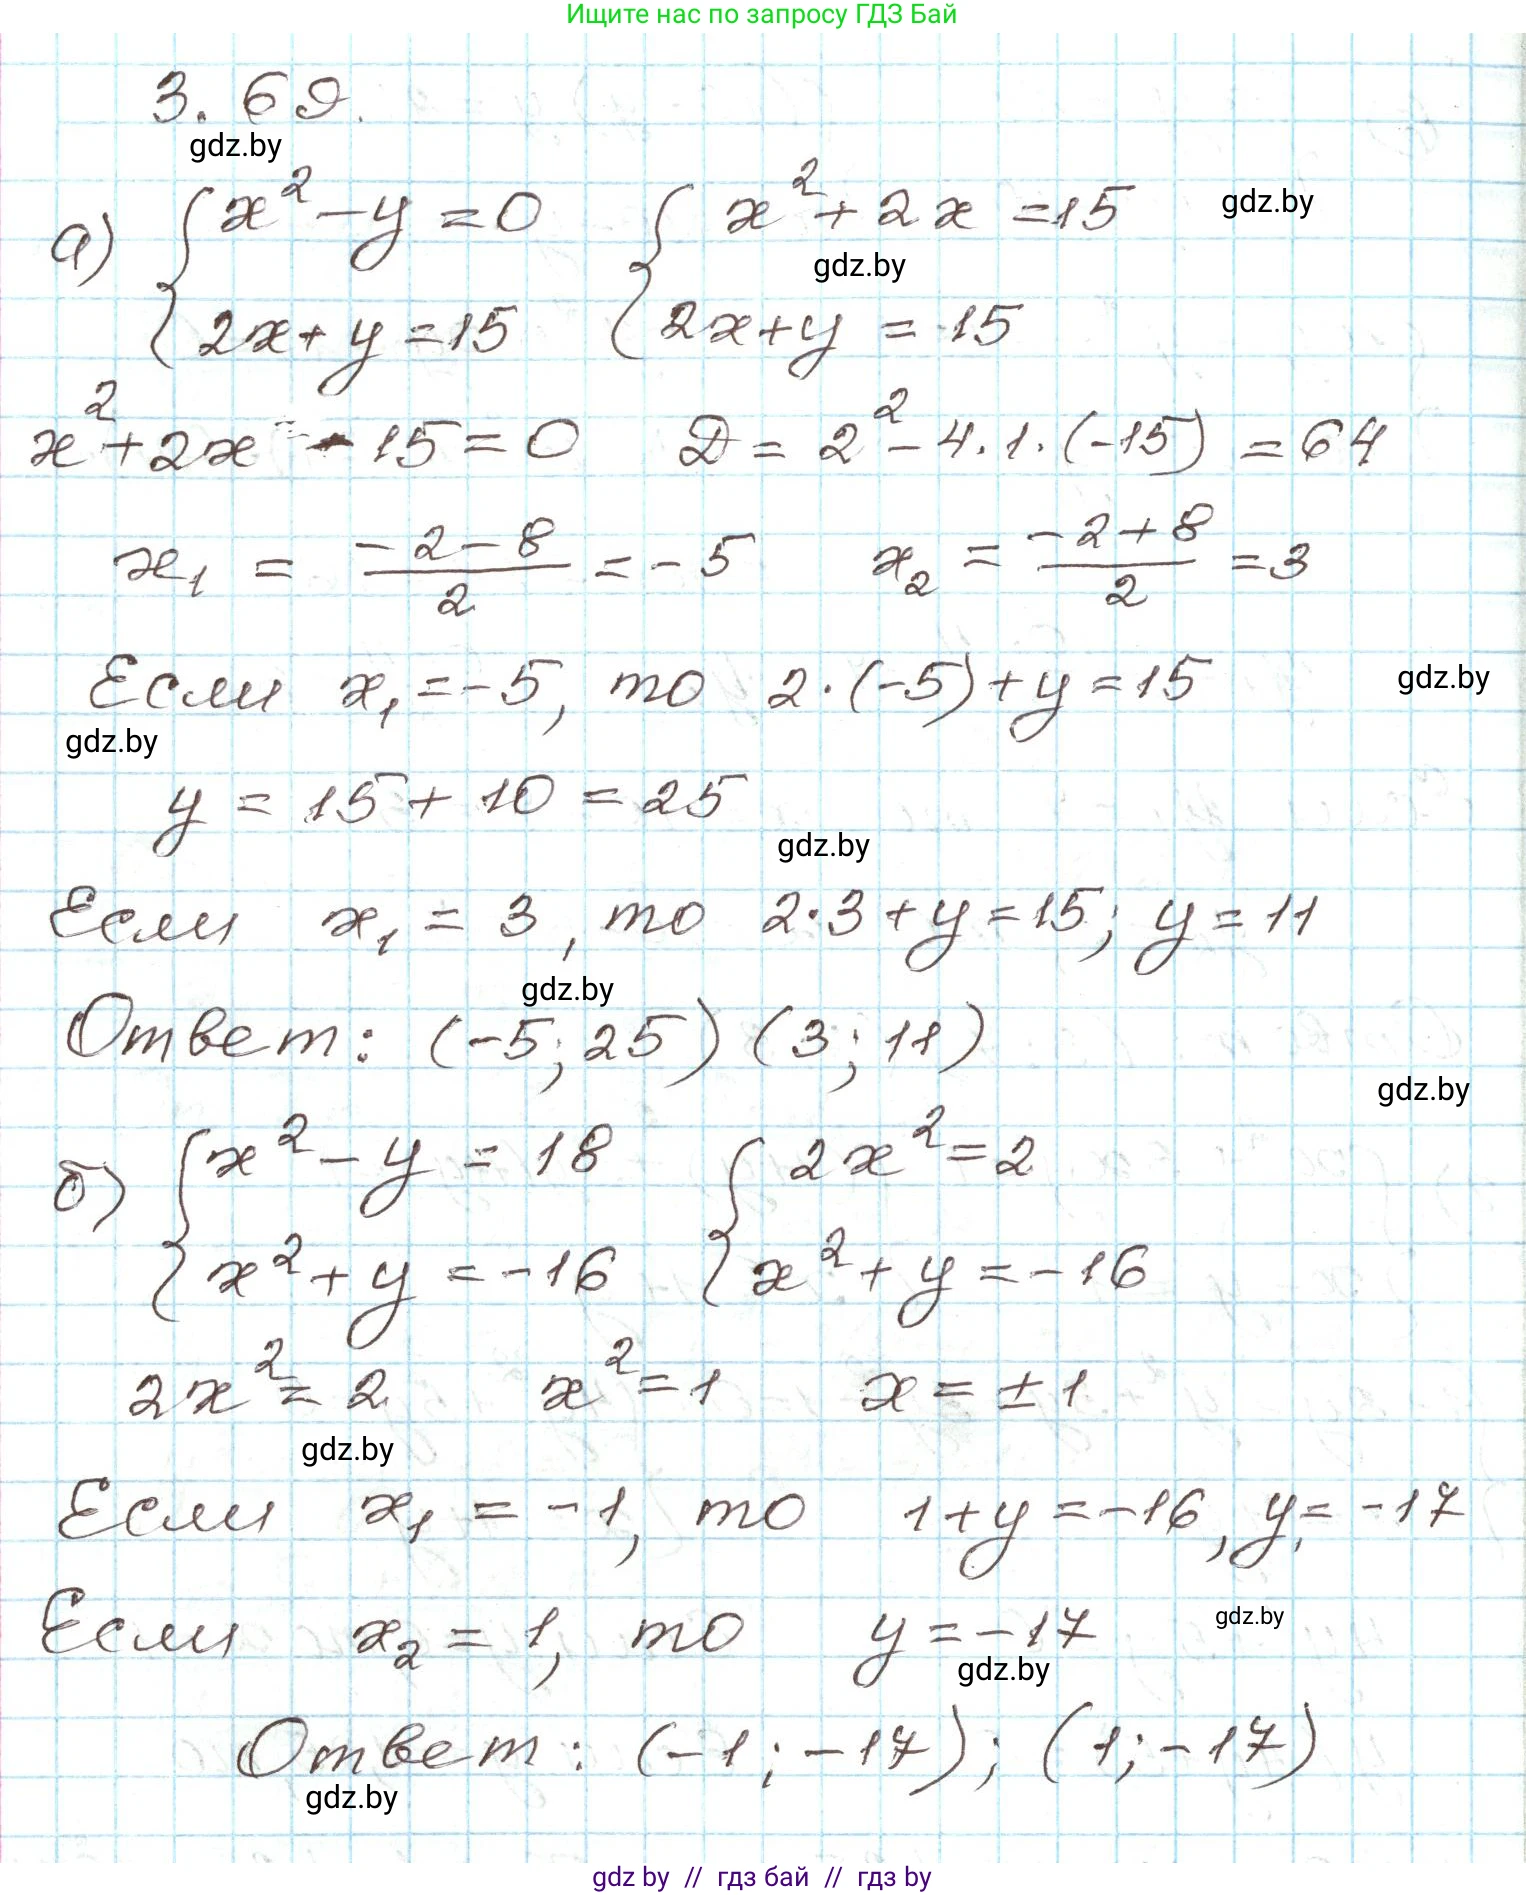 Ищите нас по запросу ГДЗ Бай
3.69.
gdz.by
а) { x² - y = 0 { x² + 2x = 15 gdz.by
gdz.by
2x + y = 15 2x + y = 15
x² + 2x - 15 = 0 D = 2² - 4·1·(-15) = 64
x₁ = (-2-8)/2 = -5 x₂ = (-2+8)/2 = 3
Если x₁ = -5, то 2·(-5) + y = 15 gdz.by
gdz.by
y = 15 + 10 = 25
gdz.by
Если x₁ = 3, то 2·3 + y = 15; y = 11
gdz.by
Ответ: (-5; 25) (3; 11)
gdz.by
б) { x² - y = 18 { 2x² = 2
x² + y = -16 x² + y = -16
2x² = 2 x² = 1 x = ±1
gdz.by
Если x₁ = -1, то 1 + y = -16, y₁ = -17
Если x₂ = 1, то y = -17 gdz.by
gdz.by
Ответ: (-1; -17); (1; -17)
gdz.by
gdz by // гдз бай // гдз by